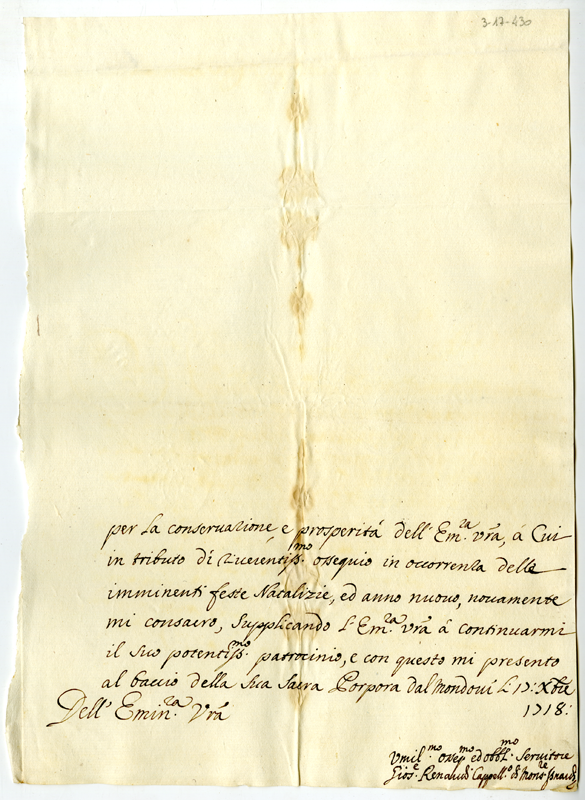 3-17-430
per la conservazione, e prosperitá dell' Em.ra vrã, á Cui
in tributo di riverentiss.mo ossequio in occorrenza delle
imminenti feste Natalizie, ed anno nuovo, novamente
mi consacro, supplicando l'Em.ra vrã á continuarmi
il suo potentiss.mo patrocinio, e con questo mi presento
al baccio della Sua Sacra Porpora dal Mondoví li 17: Xbre
1718:
Dell' Emin.ra Vrã
Vmil.mo osseq.mo ed obbl.mo Servitore
Gios.e Renaudi Cappell.o di Mons.re